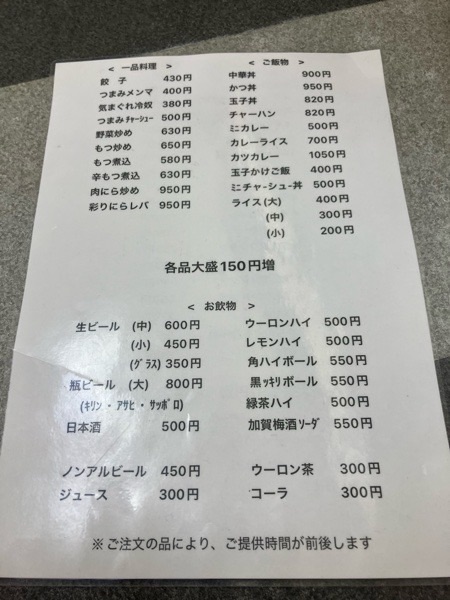 < 一品料理 >
餃 子 430円
つまみメンマ 400円
気まぐれ冷奴 380円
つまみチャーシュー 500円
野菜炒め 630円
もつ炒め 650円
もつ煮込 580円
辛もつ煮込 630円
肉にら炒め 950円
彩りにらレバ 950円
< ご飯物 >
中華丼 900円
かつ丼 950円
玉子丼 820円
チャーハン 820円
ミニカレー 500円
カレーライス 700円
カツカレー 1050円
玉子かけご飯 400円
ミニチャーシュー丼 500円
ライス(大) 400円
(中) 300円
(小) 200円
各品大盛150円増
< お飲物 >
生ビール (中) 600円
(小) 450円
(グラス) 350円
瓶ビール (大) 800円
(キリン・アサヒ・サッポロ)
日本酒 500円
ウーロンハイ 500円
レモンハイ 500円
角ハイボール 550円
黒ッキリボール 550円
緑茶ハイ 500円
加賀梅酒ソーダ 550円
ノンアルビール 450円
ジュース 300円
ウーロン茶 300円
コーラ 300円
※ご注文の品により、ご提供時間が前後します